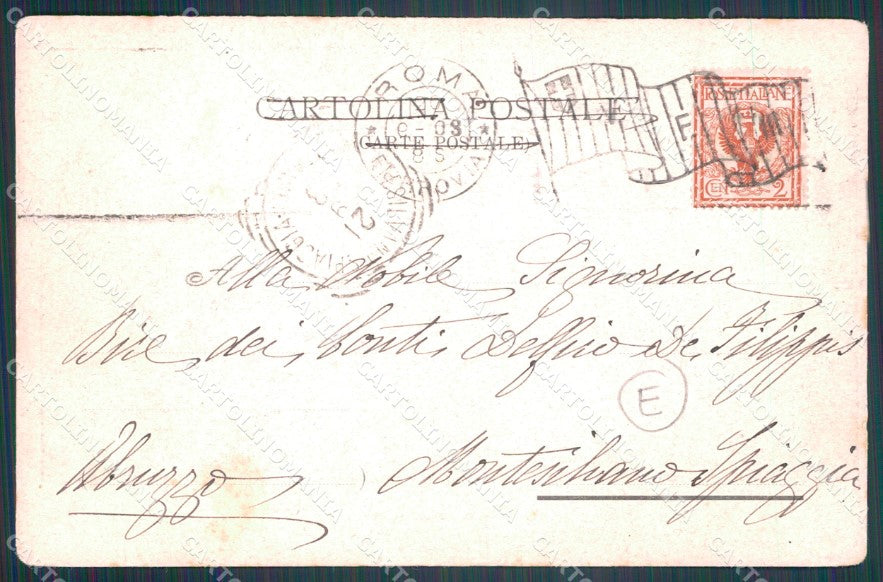 CARTOLINA POSTALE
(CARTE POSTALE)
ROMA
9-03
FERROVIA
POSTE ITALIANE
CENT 2
Alla Nobile Signorina
Bice dei Conti Delfico De Filippis
E
Abruzzo Montesilvano Spiaggia
CARTOLINOMANIA